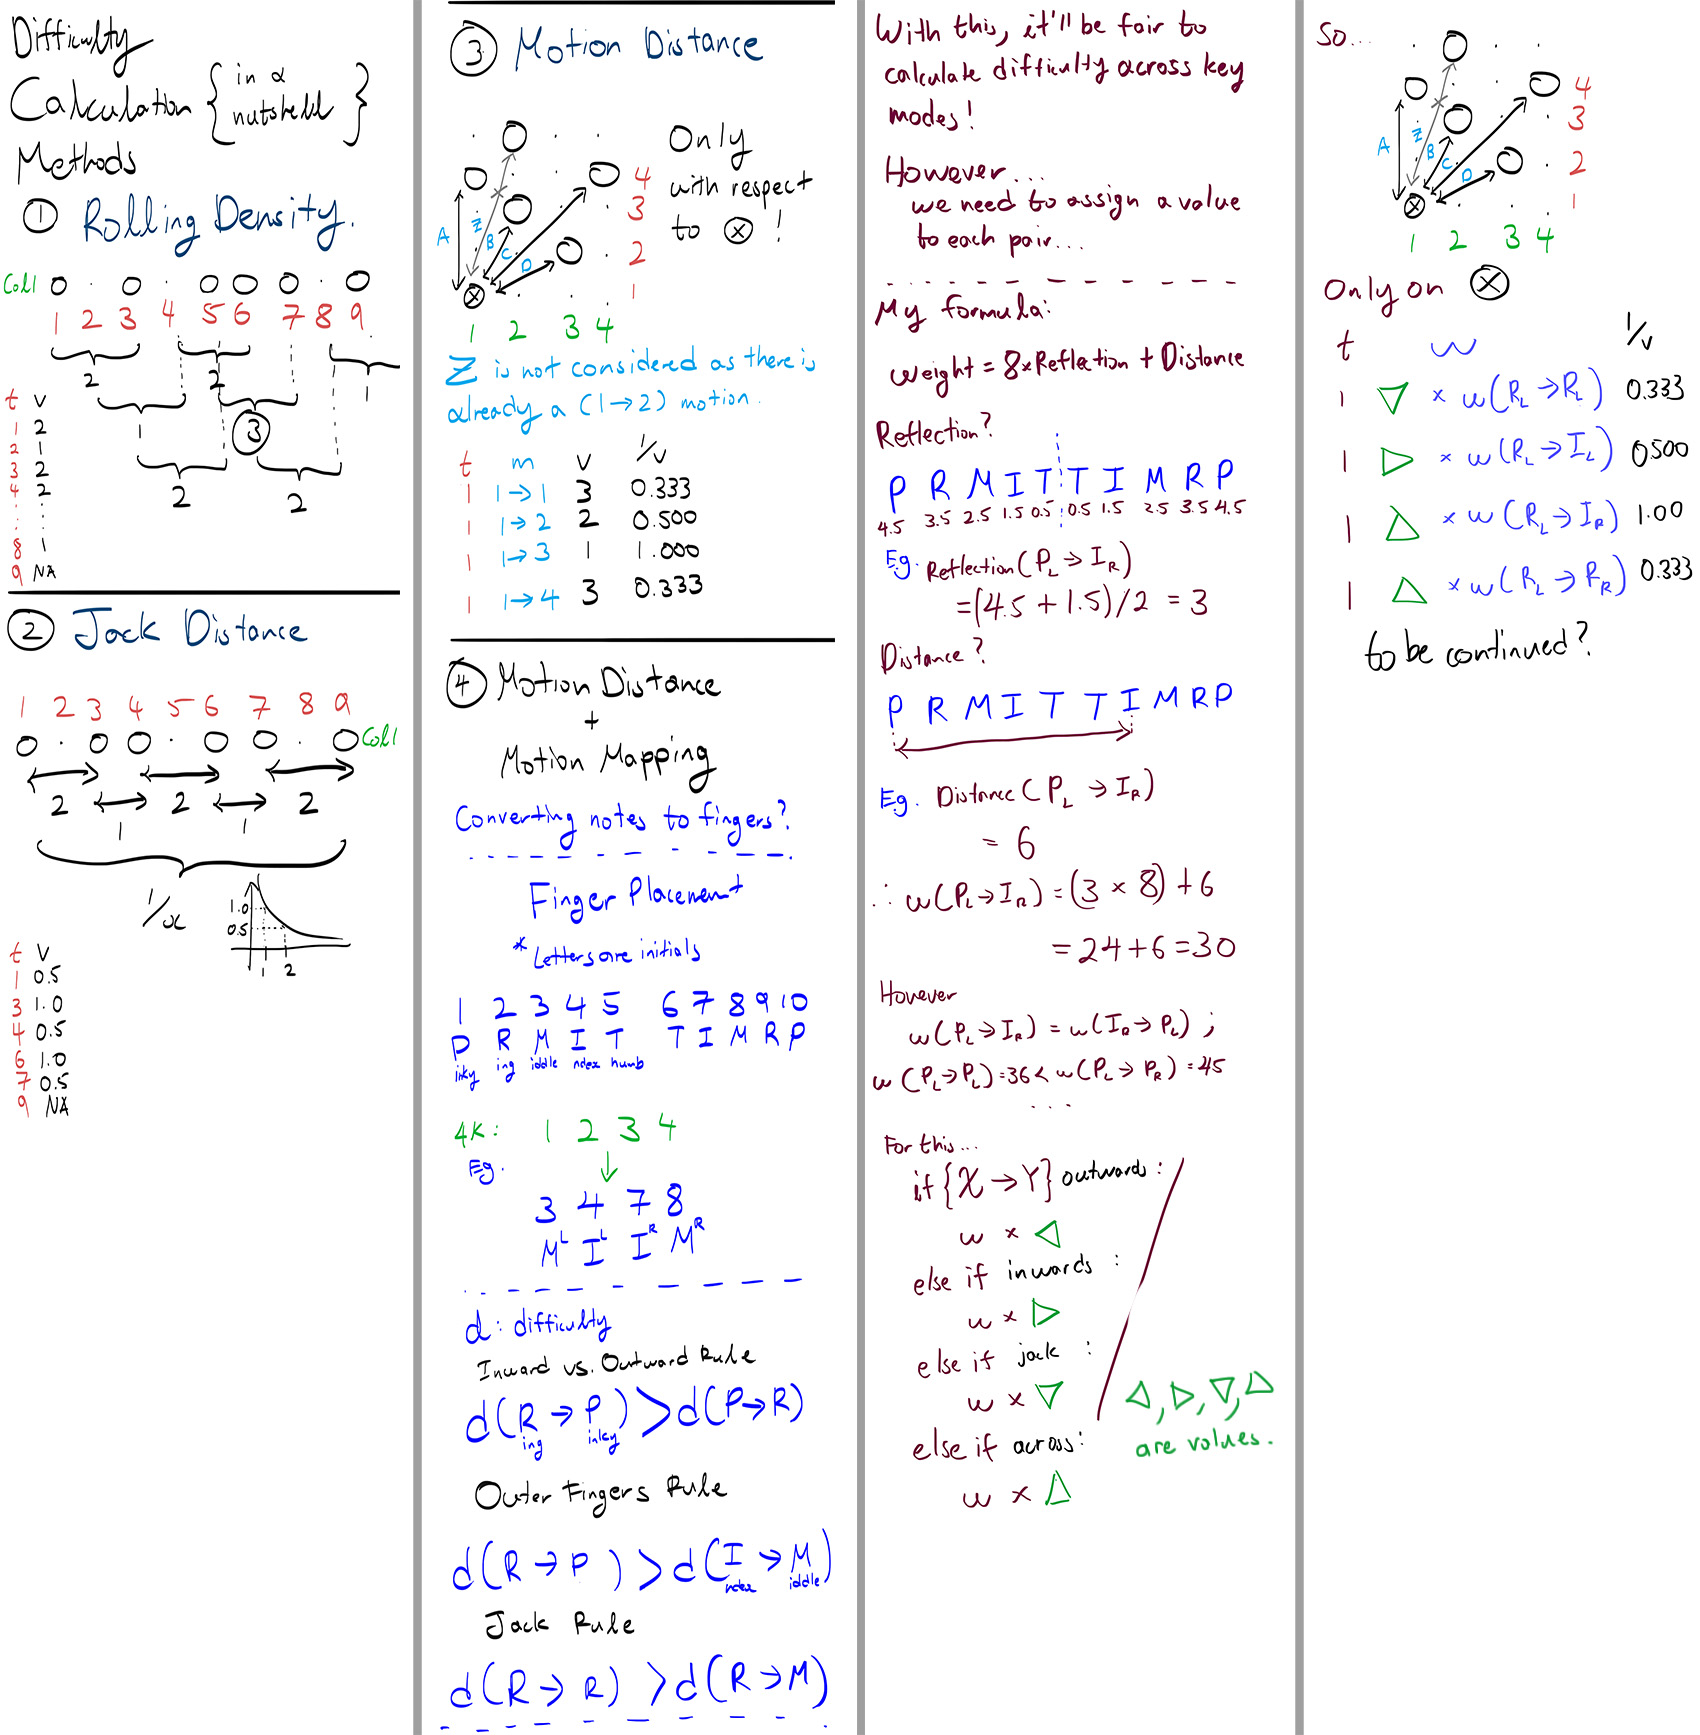 Difficulty
Calculation { in a nutshell }
Methods
① Rolling Density.
Col1
1 2 3 4 5 6 7 8 9
2 2 1
1 3
2 2
t v
1 2
2 1
3 2
4 2
8 1
9 NA
② Jack Distance
1 2 3 4 5 6 7 8 9
Col1
2 2 2
1 1
1/x
1.0
0.5
1 2
t v
1 0.5
3 1.0
4 0.5
6 1.0
7 0.5
9 NA
③ Motion Distance
Only
with respect
to ⊗ !
4
3
2
1
A Z B C D
1 2 3 4
Z is not considered as there is
already a (1→2) motion.
t m v 1/v
1 1→1 3 0.333
1 1→2 2 0.500
1 1→3 1 1.000
1 1→4 3 0.333
④ Motion Distance
+
Motion Mapping
Converting notes to fingers?
Finger Placement
* Letters are initials
1 2 3 4 5 6 7 8 9 10
P R M I T T I M R P
inky ing iddle ndex humb
4K: 1 2 3 4
Eg. ↓
3 4 7 8
M^L I^L I^R M^R
d: difficulty
Inward vs. Outward Rule
d(R → P) > d(P→R)
ing inky
Outer Fingers Rule
d(R → P) > d(I → M)
ndex iddle
Jack Rule
d(R → R) > d(R → M)
With this, it'll be fair to
calculate difficulty across key
modes!
However...
we need to assign a value
to each pair...
My formula:
weight = 8×Reflection + Distance
Reflection?
P R M I T T I M R P
4.5 3.5 2.5 1.5 0.5 0.5 1.5 2.5 3.5 4.5
Eg. Reflection(P_L → I_R)
=(4.5 + 1.5)/2 = 3
Distance?
P R M I T T I M R P
Eg. Distance(P_L → I_R)
= 6
∴ w(P_L→I_R) = (3 × 8) + 6
= 24 + 6 = 30
However
w(P_L→I_R) = w(I_R→P_L) ;
w(P_L→P_L)=36 < w(P_L→P_R)=45
...
For this...
if {X → Y} outwards:
w × ◁
else if inwards:
w × ▷
else if jack:
w × ▽
else if across:
w × △
◁, ▷, ▽, △
are values.
So...
4
3
2
1
A Z B C D
1 2 3 4
Only on ⊗
t w 1/v
1 ▽ × w(R_L→R_L) 0.333
1 ▷ × w(R_L→I_L) 0.500
1 △ × w(R_L→I_R) 1.00
1 △ × w(R_L→R_R) 0.333
to be continued?